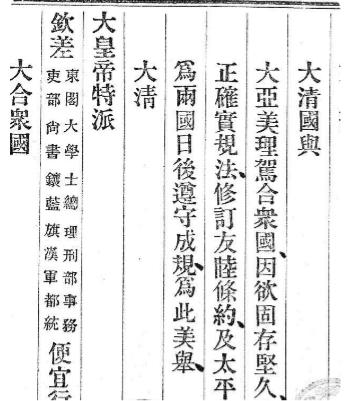 大清國與
大亞美理駕合衆國、因欲固存堅久、
正確實規法、修訂友睦條約、及太平
爲兩國日後遵守成規、爲此美舉、
大清
大皇帝特派
欽差東閣大學士總理刑部事務吏部尚書鑲藍旗漢軍都統便宜行
大合衆國